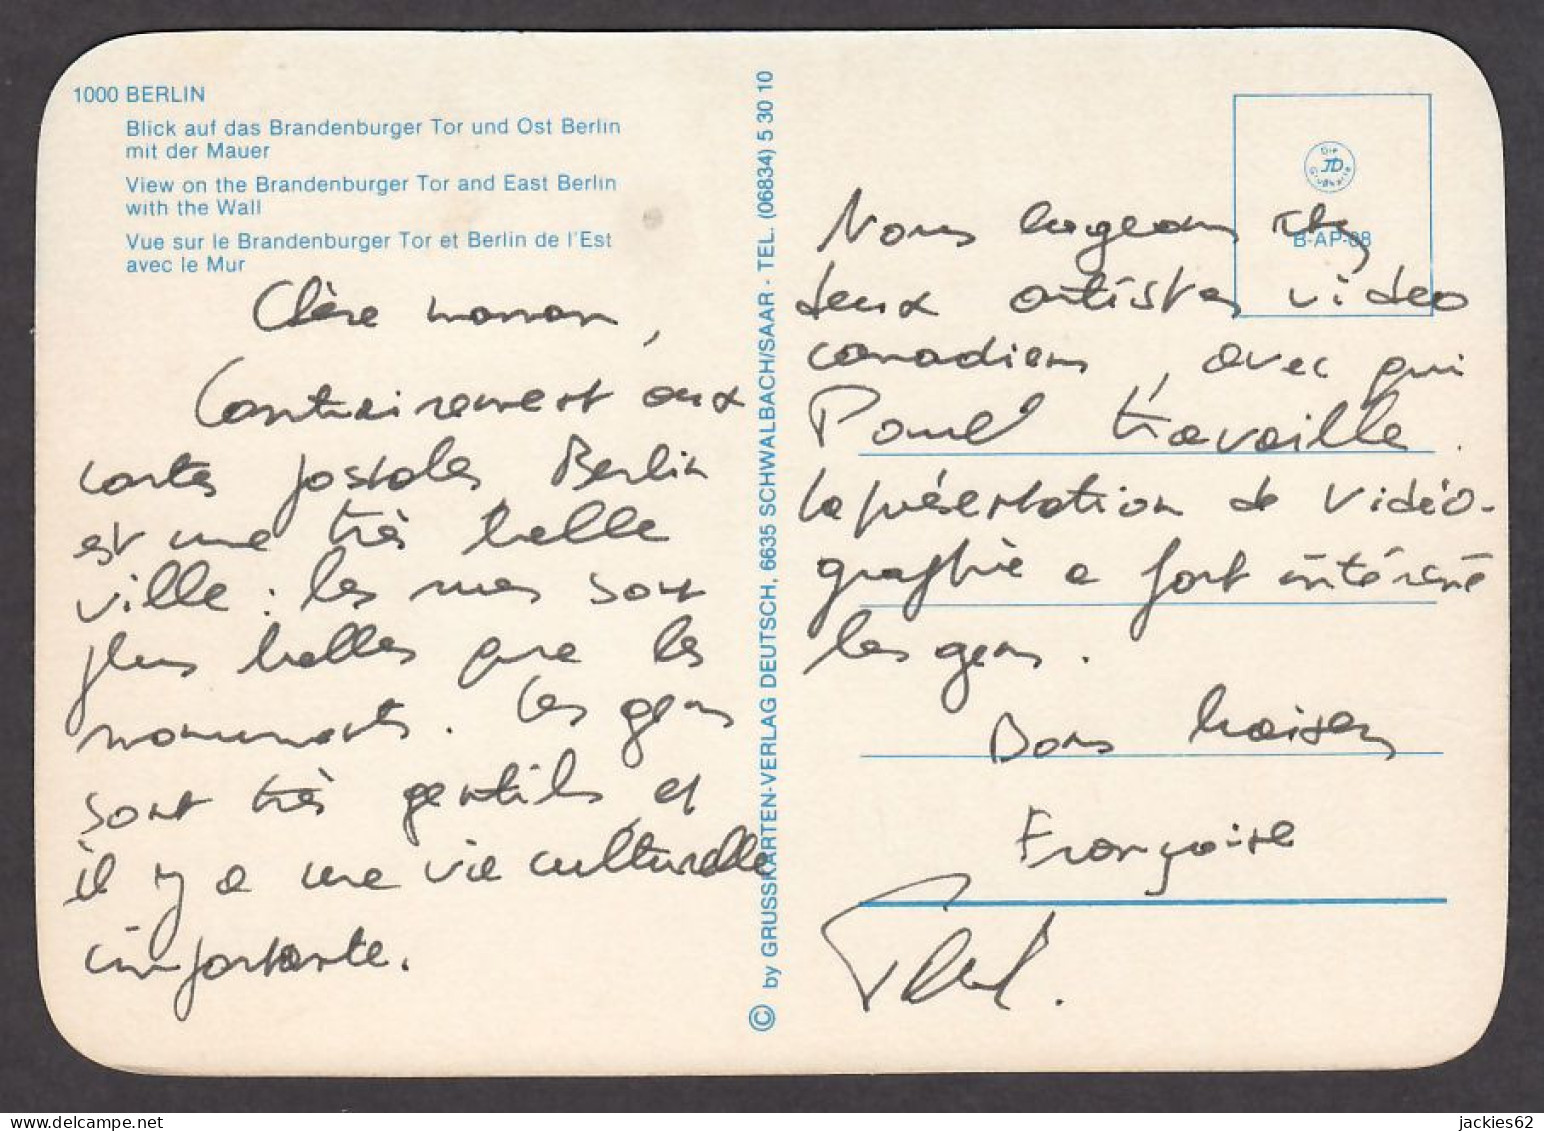 1000 BERLIN
Blick auf das Brandenburger Tor und Ost Berlin
mit der Mauer
View on the Brandenburger Tor and East Berlin
with the Wall
Vue sur le Brandenburger Tor et Berlin de l'Est
avec le Mur
Chère maman,
Contrairement aux
cartes postales Berlin
est une très belle
ville : les rues sont
plus belles que les
monuments. Les gens
sont très gentils, et
il y a une vie culturelle
importante.
© by GRUSSKARTEN-VERLAG DEUTSCH, 6635 SCHWALBACH/SAAR - TEL. (06834) 5 30 10
Die
JD
Grußkarte
B-AP-68
Nous logeons chez
deux artistes video
canadiens, avec qui
Paul travaille.
La présentation de vidéo-
graphie a fort intéressé
les gens.
Bons baisers
Françoise
Paul.
jackies62